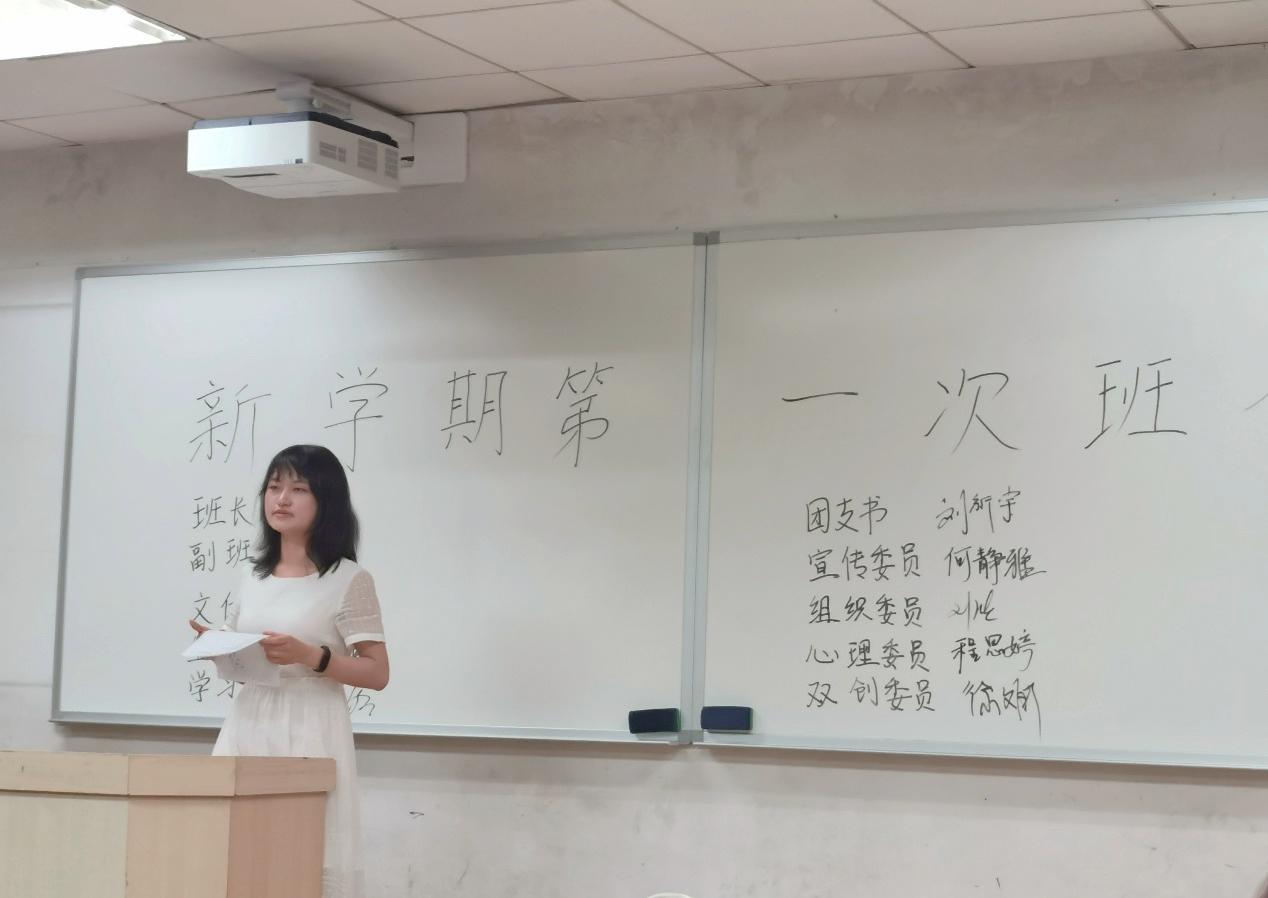 新学期第一次班
班长
副班
文
学习
团支书 刘新宇
宣传委员 何静雅
组织委员 刘
心理委员 程思婷
双创委员 徐